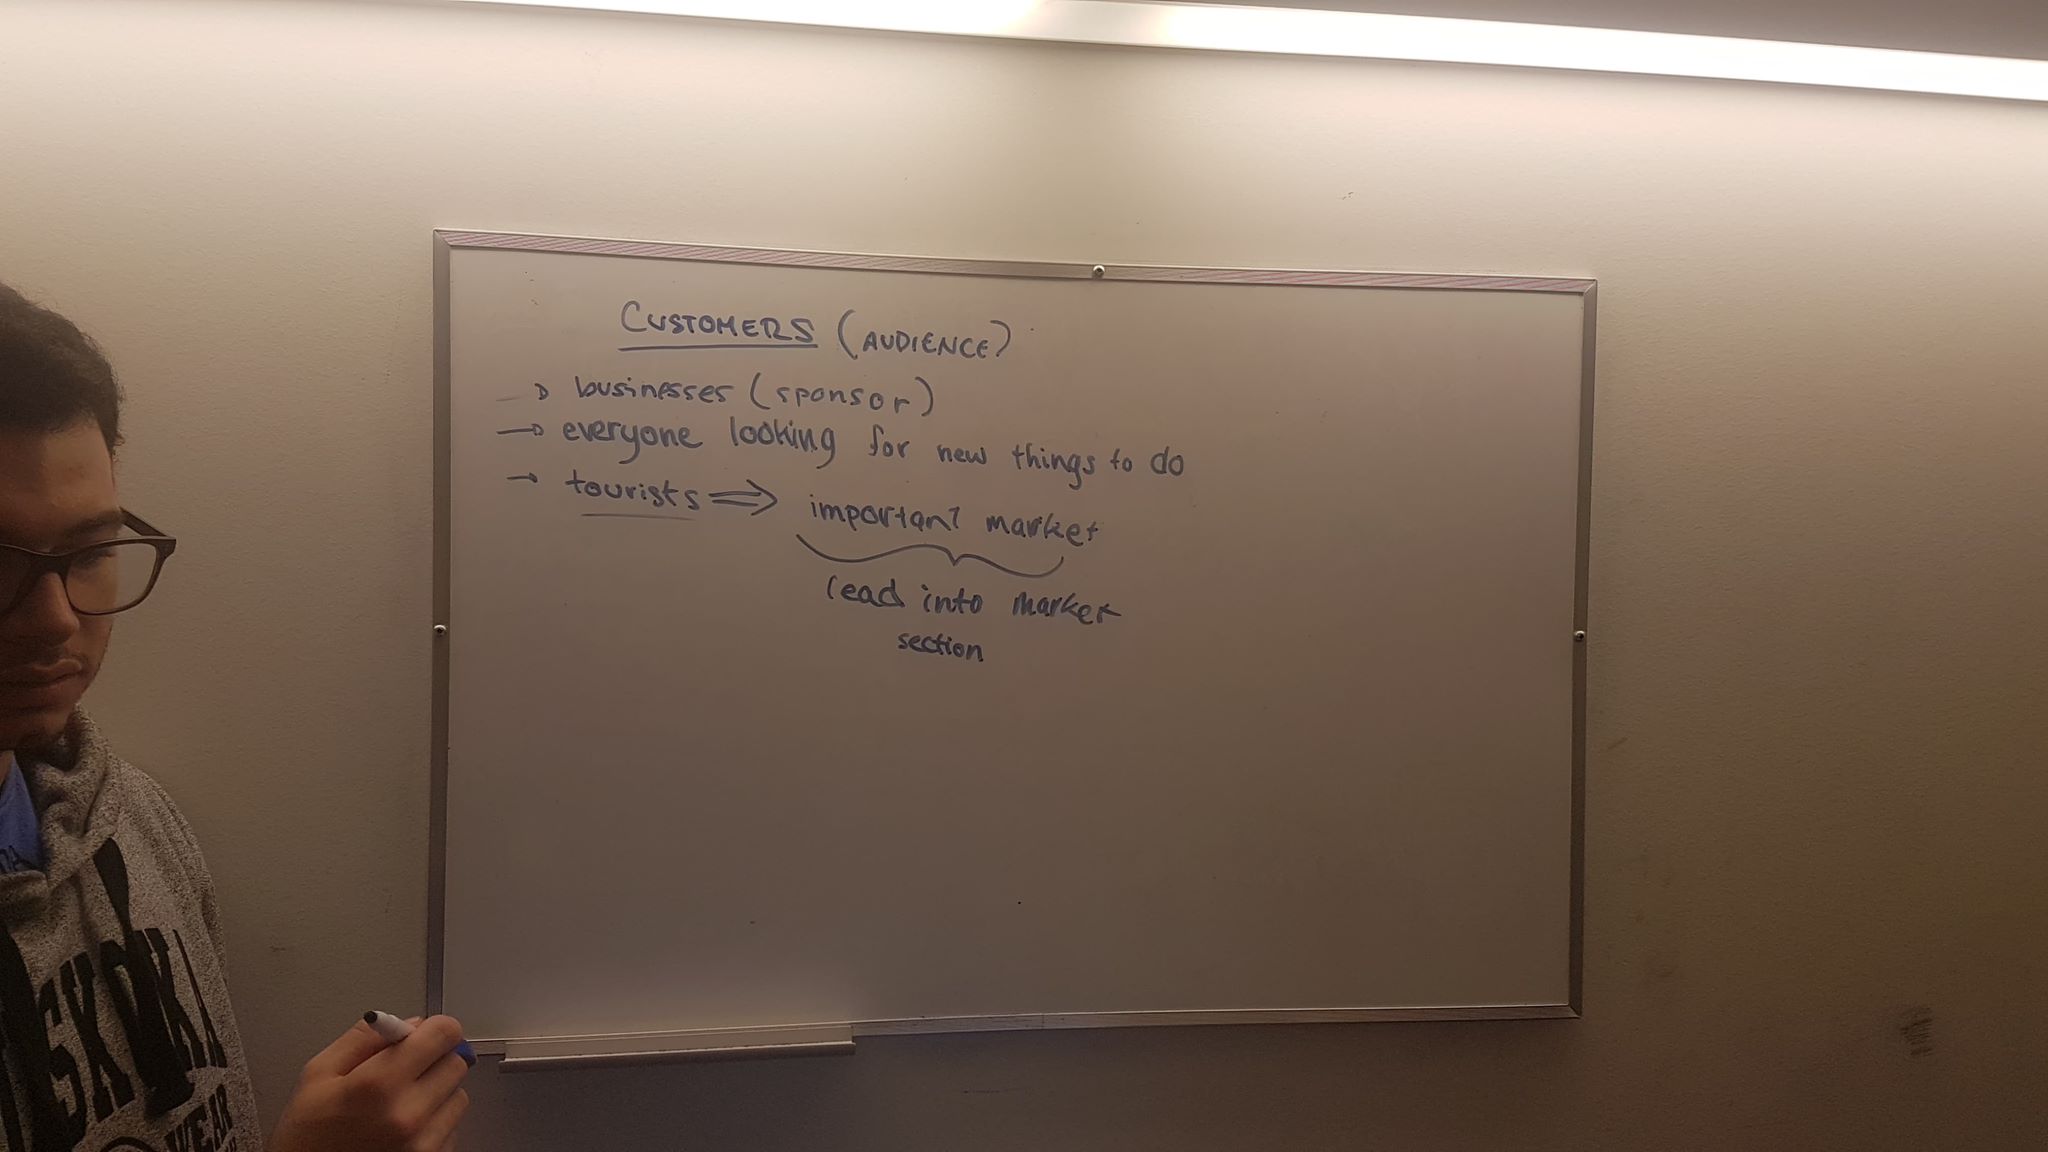 CUSTOMERS (AUDIENCE)
→ businesses (sponsor)
→ everyone looking for new things to do
→ tourists ⇒ important market
lead into market
section
WEAR